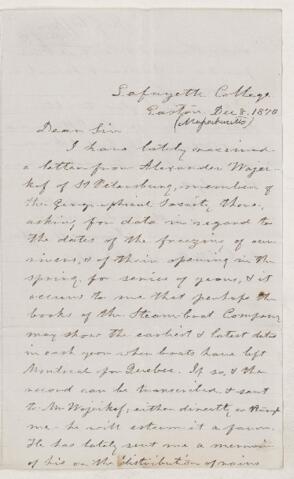 Lafayette College
Easton Dec 8. 1878
(Massachusetts)
Dear Sir
I have lately received
a letter from Alexander Wojei-
kof of St Petersburg, member of
the Geographical Society there,
asking for data in regard to
the dates of the freezing of our
rivers, & of their opening in the
spring, for series of years, & it
occurs to me that perhaps the
books of the Steamboat Company
may show the earliest & latest dates
in each year when boats have left
Montreal for Quebec. If so, & the
record can be transcribed & sent
to Mr Wojeikof, either directly or through
me - he will esteem it a favor.
He has lately sent me a memoir
of his on the distribution of rains